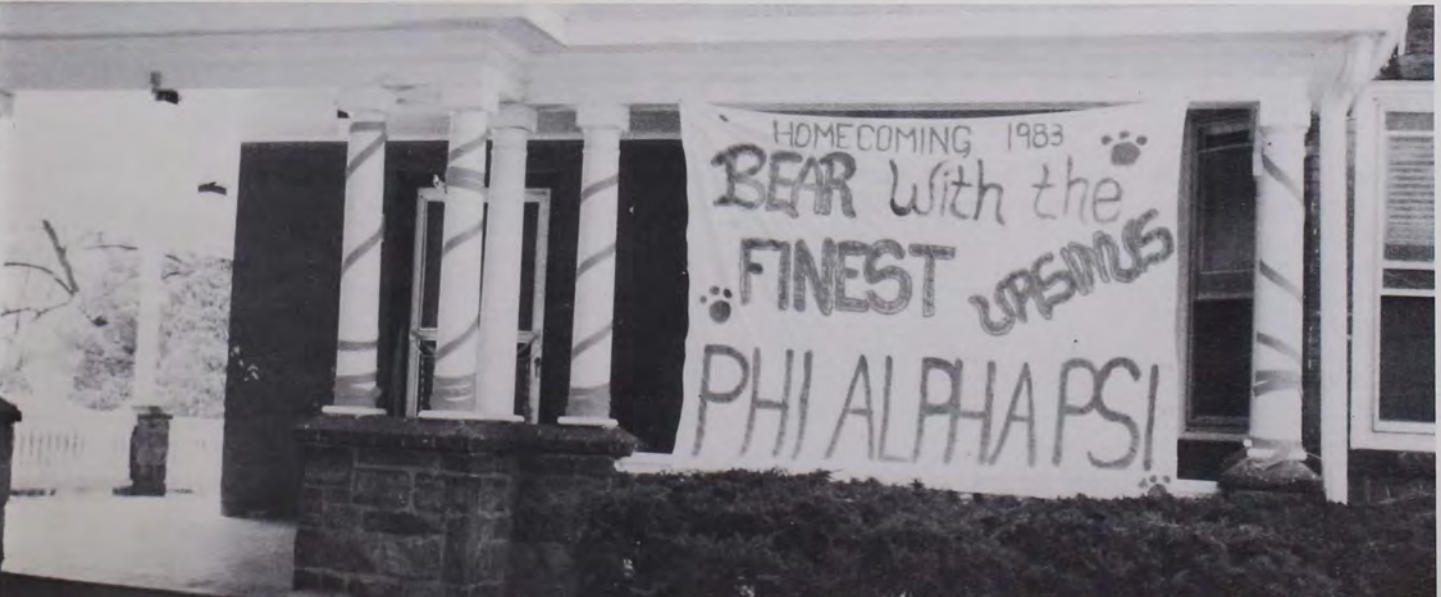 HOMECOMING 1983
BEAR With the
FINEST URSINUS
PHI ALPHA PSI